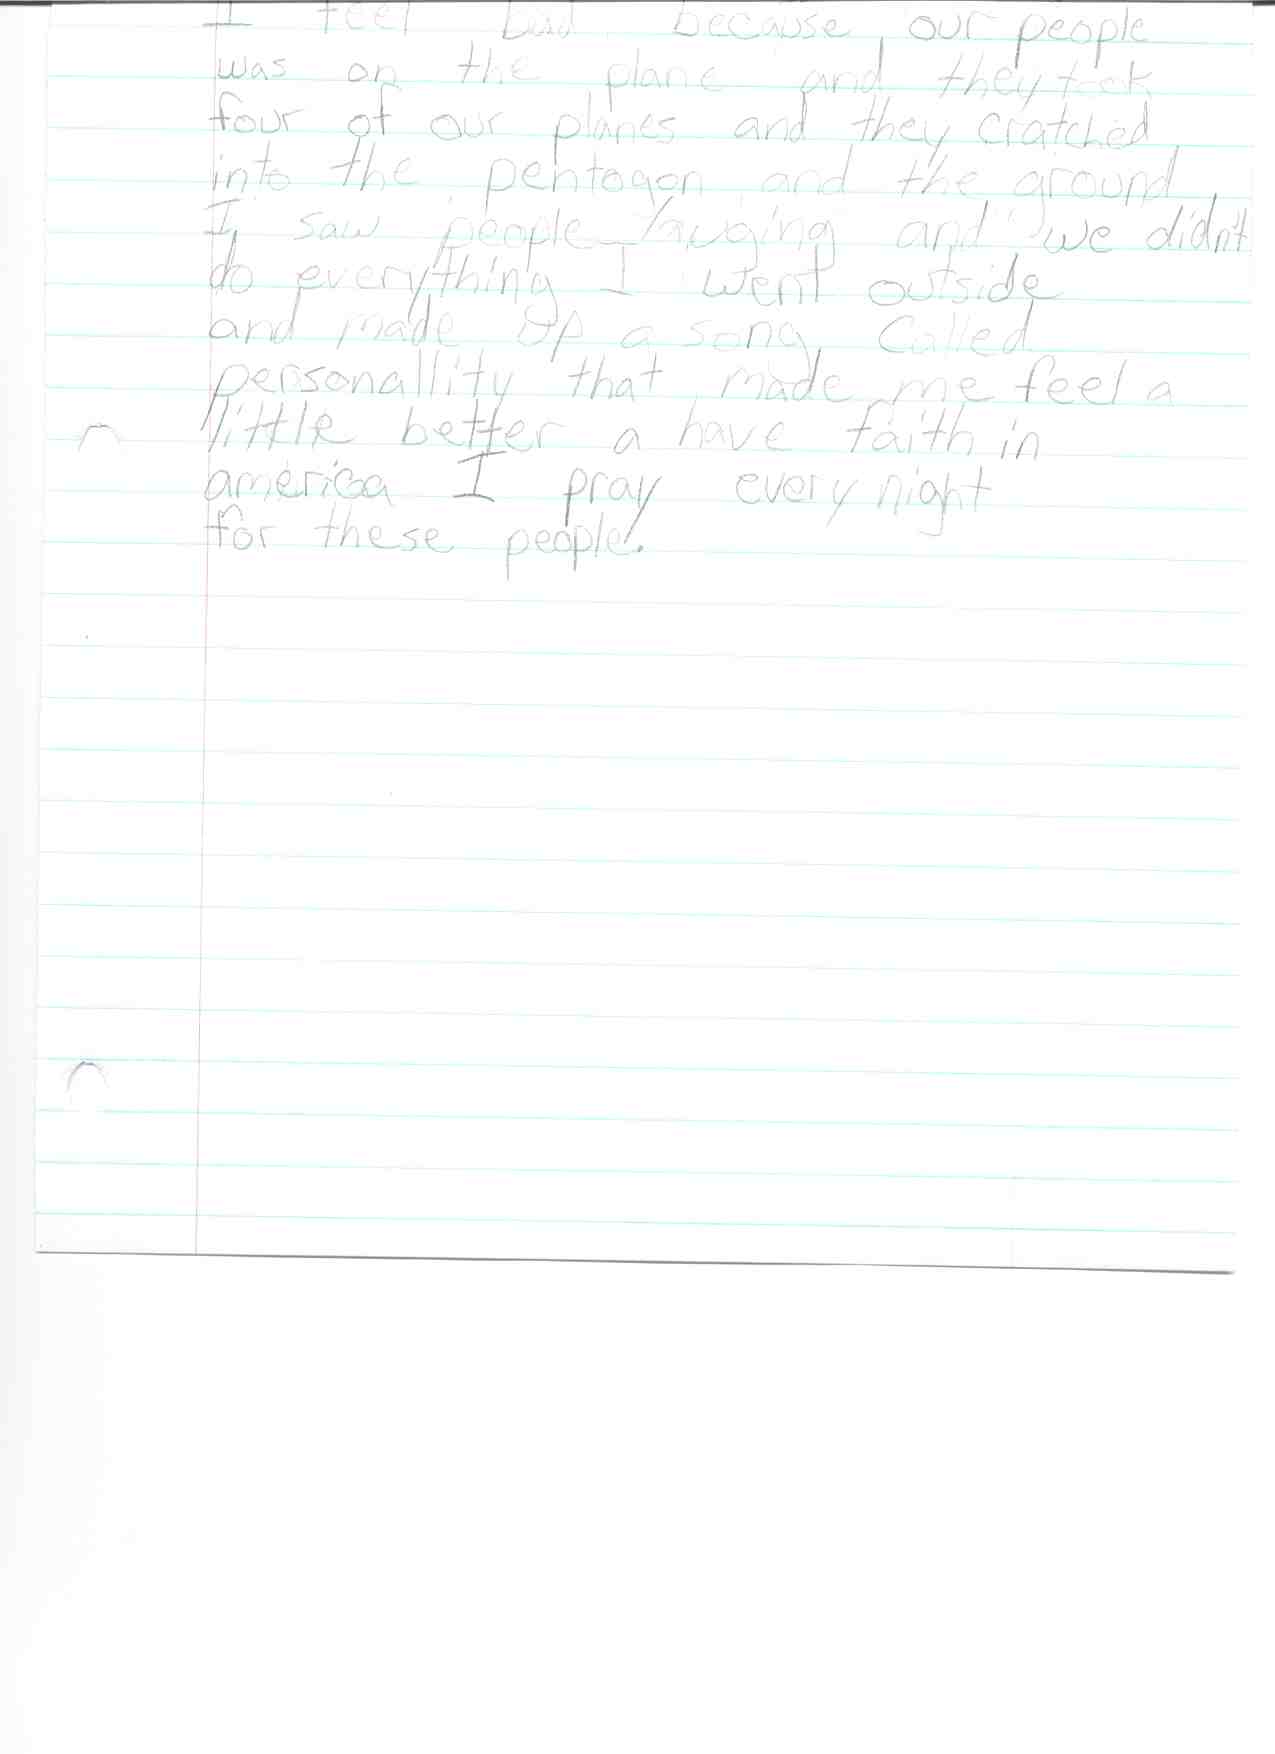 I feel bad because our people
was on the plane and they took
four of our planes and they cratched
into the pentogon and the ground
I saw people lauging and we didn't
do everything I went outside
and made up a song called
personallity that made me feel a
little better a have faith in
america I pray every night
for these people.